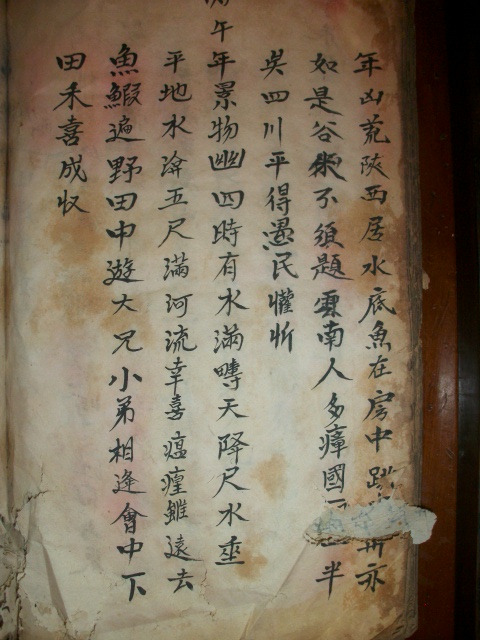 年凶荒陝西居水底魚在房中卅亦
如是谷米不須題雲南人多瘴國半
吳四川平得愚民懽忻
丙午年景物幽四時有水滿疇天降尺水垂
平地水渰五尺滿河流幸喜瘟瘴雖遠去
魚鰕遍野田中遊大兄小弟相逢會中下
田禾喜成収